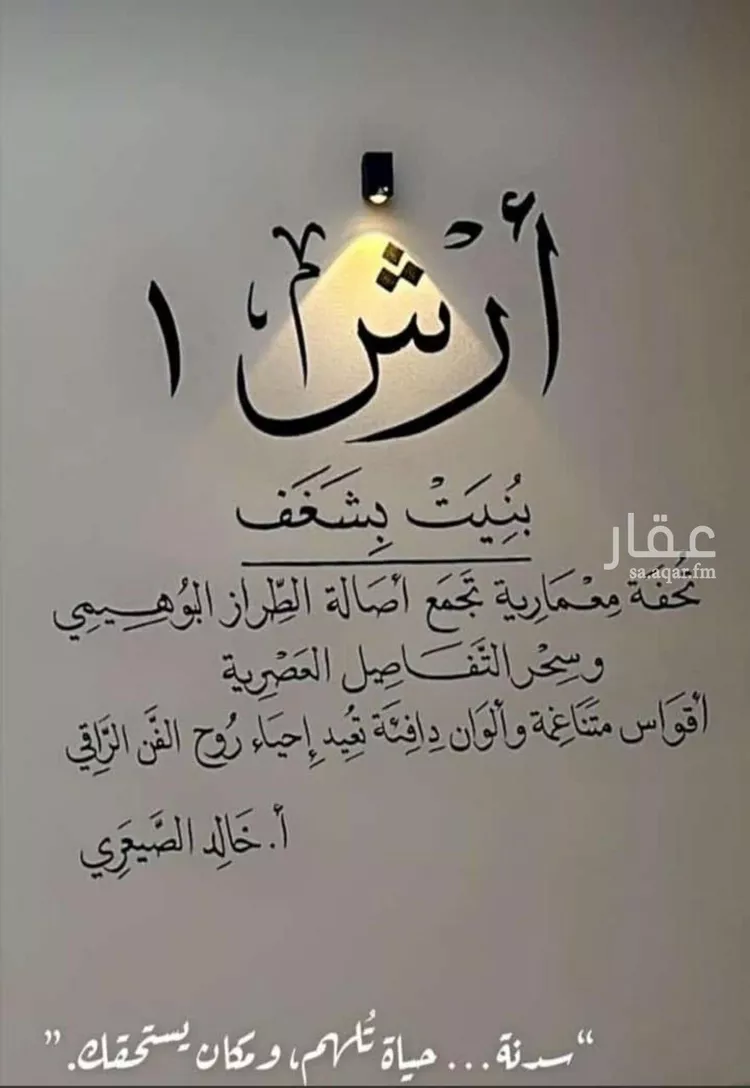 أرش ١
بُنِيَتْ بِشَغَف
عقار
sa.aqar.fm
تُحَفَة مِعْمَارِية تَجَمَع أصَالة الطِّراز البُوهِيمِي
وسِحْر التَّفَاصِيل العَصْرِية
أقوَاس متَنَاغِمة وألوَان دِافِئَة تعُيد إحيَاء رُوح الفَن الرَّاقِي
أ. خَالِد الصَّيعَرِي
“سدنة... حياة تُلهم، ومكان يستحقك.”